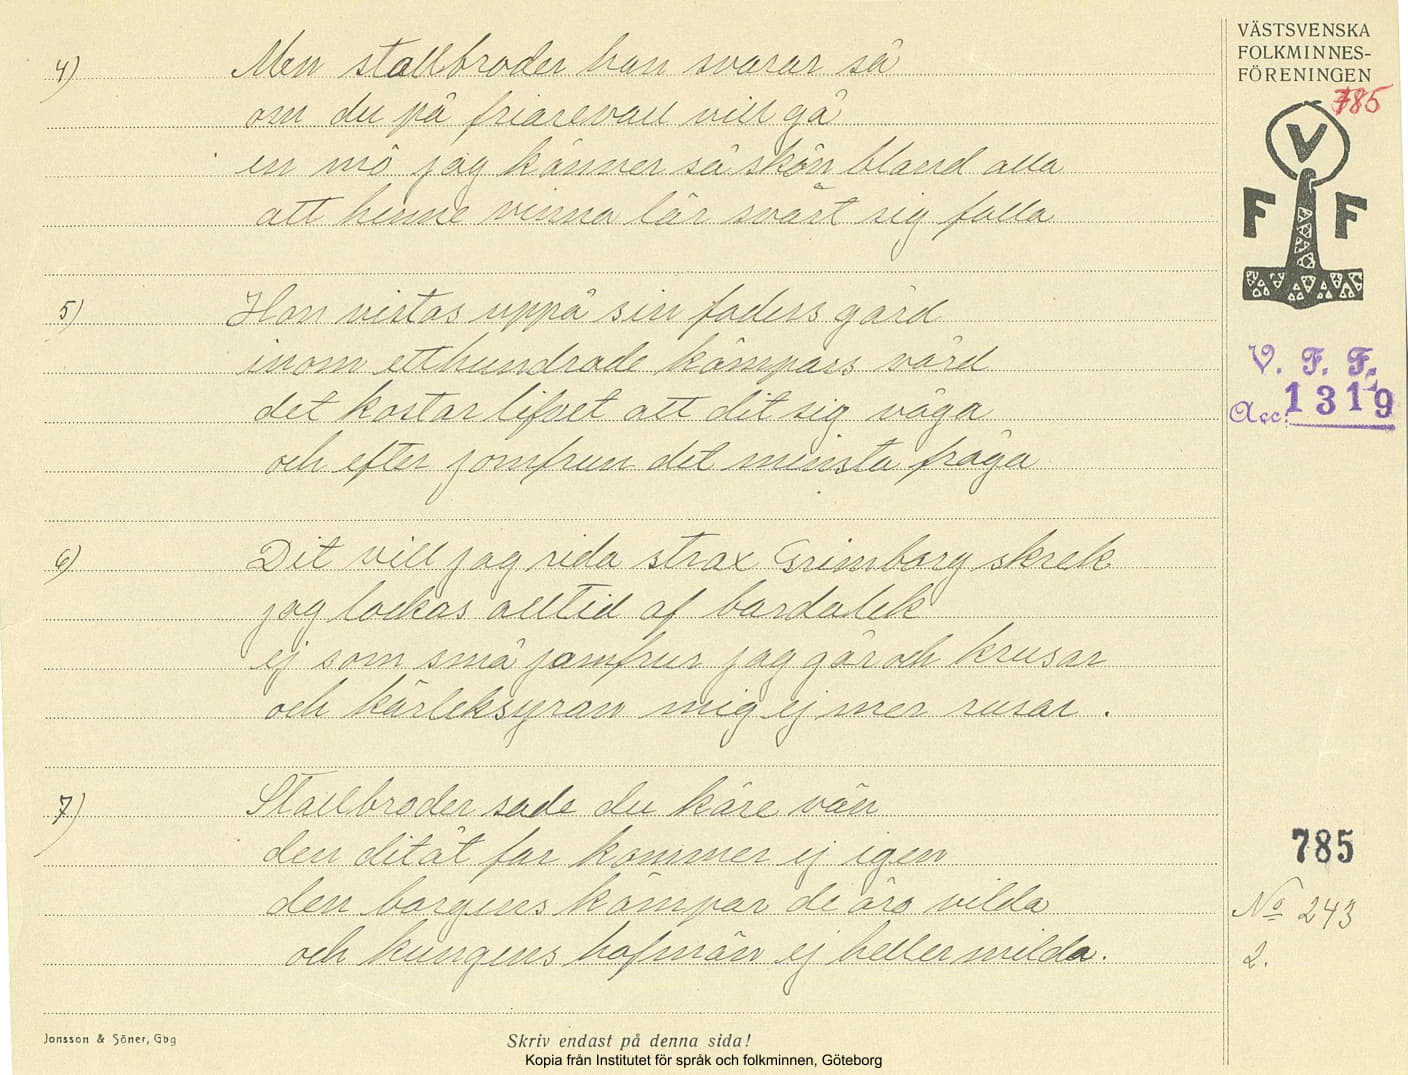 4) Men stallbroder han svarar så
om du på friarevall vill gå
en mö jag känner så skön bland alla
att henne vinna lär svårt sig falla
5) Hon vistas uppå sin faders gård
inom etthundrade kämpars vård
det kostar lifvet att dit sig våga
och efter jomfrun det minsta fråga
6) Dit vill jag rida strax Grimborg skrek
jag lockas alltid af bardalek
ej som små jomfrur jag går och krusar
och kärleksyran mig ej mer rusar.
7) Stallbroder sade du käre vän
den ditåt far kommer ej igen
den borgens kämpar de äro vilda
och kungens hofmän ej heller milda.
VÄSTSVENSKA
FOLKMINNES-
FÖRENINGEN
785
V
F F
V. F. F.
Acc: 1319
785
No 243
2.
Jonsson & Söner, Gbg
Skriv endast på denna sida!
Kopia från Institutet för språk och folkminnen, Göteborg